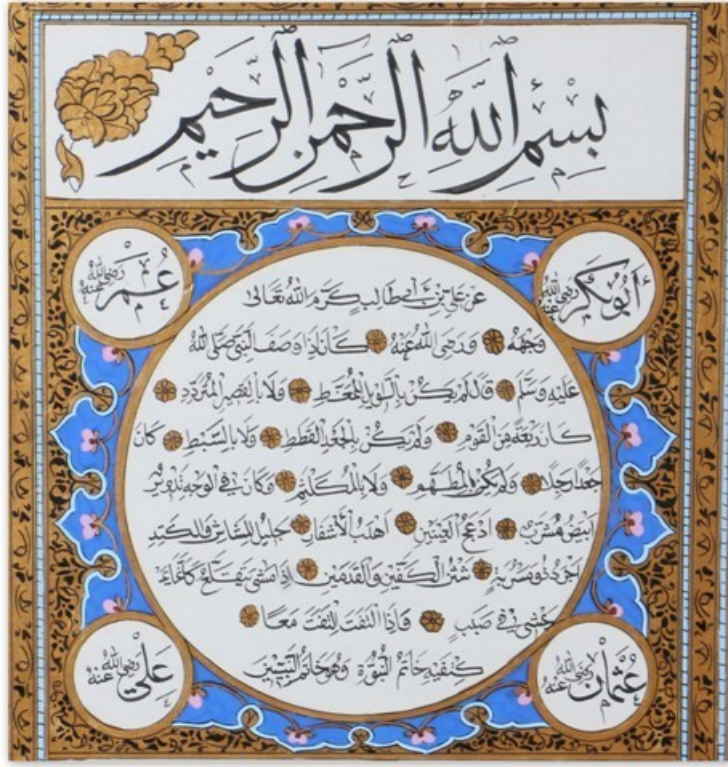 بِسْمِ اللهِ الرَّحْمٰنِ الرَّحِيمِ
أَبُو بَكْرٍ رَضِيَ اللهُ عَنْهُ
عُمَرُ رَضِيَ اللهُ عَنْهُ
عن علي بن أبي طالب كرم الله تعالى
وجهه ورضي الله عنه كان إذا وصف النبي صلى الله
عليه وسلم قال لم يكن بالطويل الممغط ولا بالقصير المتردد
كان ربعة من القوم ولم يكن بالجعد القطط ولا بالسبط كان
جعدا رجلا ولم يكن بالمطهم ولا بالمكلثم وكان في الوجه تدوير
ابيض مشرب ادعج العينين اهدب الأشفار جليل المشاش والكتد
اجرد ذو مسربة شثن الكفين والقدمين إذا مشى يتقلع كأنما
يمشي في صبب وإذا التفت التفت معا
كتفيه خاتم النبوة وهو خاتم النبيين
عُثْمَانُ رَضِيَ اللهُ عَنْهُ
عَلِيٌّ رَضِيَ اللهُ عَنْهُ